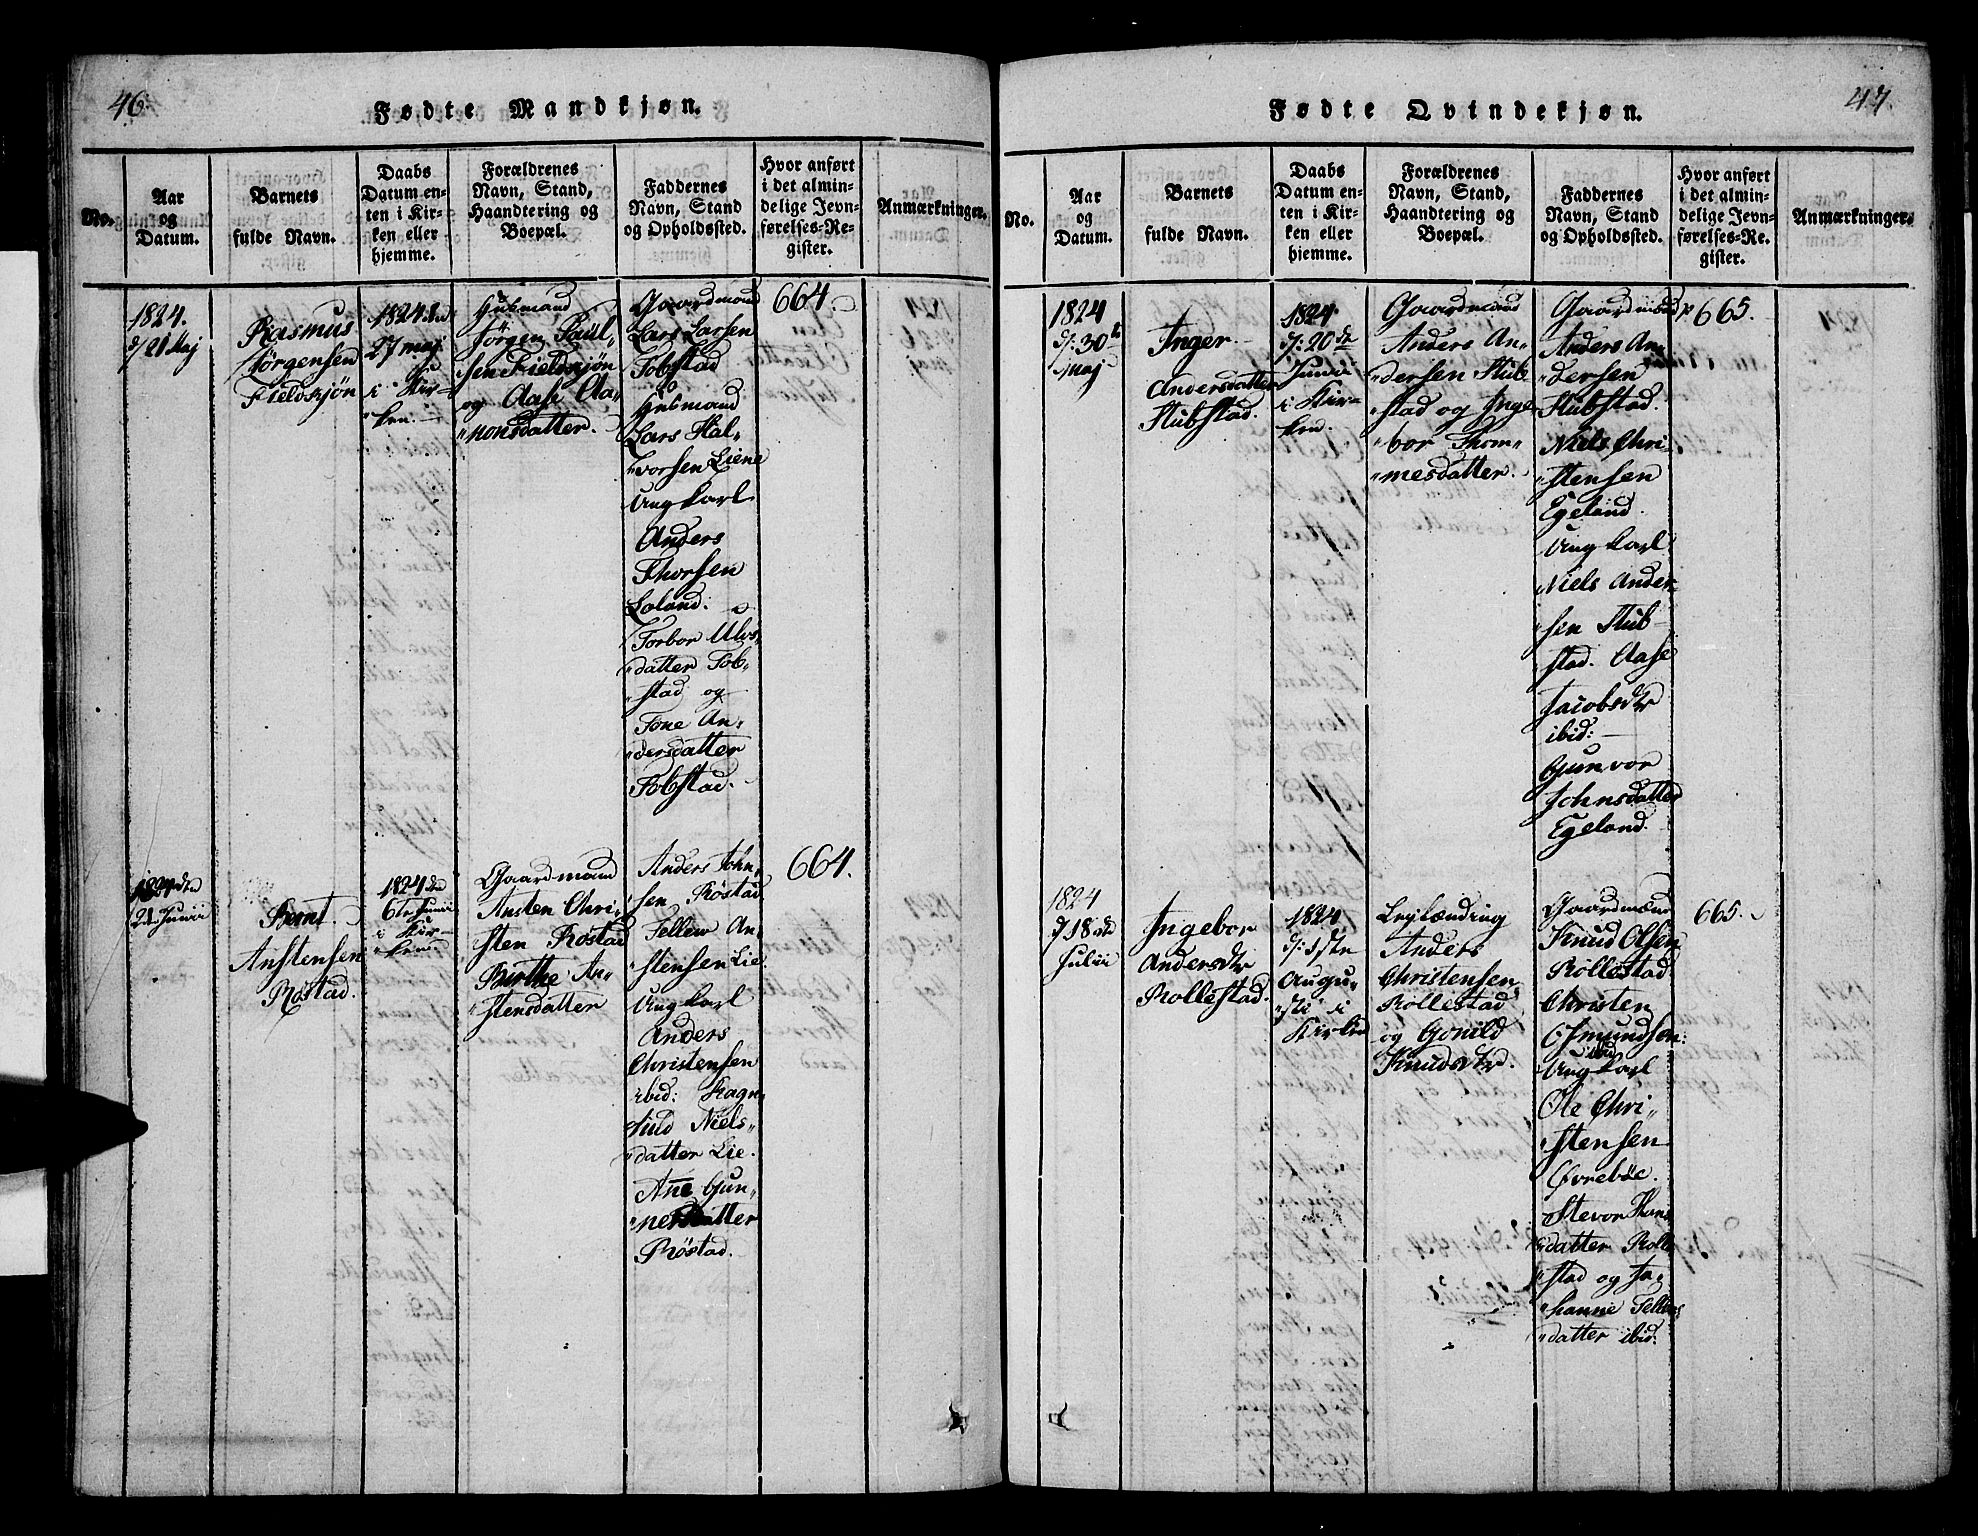 46.
Fødte Mandkjøn.
No.
Aar
og
Datum.
Barnets
fulde Navn.
Daabs
Datum en-
ten i Kir-
ken eller
hjemme.
Forældrenes
Navn, Stand,
Haandtering og
Boepæl.
Faddernes
Navn, Stand
og Opholdssted.
Hvor anført
i det almin-
delige Jevn-
førelses-Re-
gister.
Anmærkninger.
1824.
d/ 21 Maj
Rasmus
Jørgensen
Fieldskjøn
1824 den
27 maj
i Kir-
ken.
Husmand
Jörgen Paul-
sen Fieldskjön
og Aase Aa-
"monsdatter.
Gaardmand
Lars Larsen
Fobstad
Husmand
Lars Hal-
"vorsen Liene
Ung karl
Anders
Thorsen
Loland:
Torbor Ulvs
"datter Fob-
"stad og
Tone An-
"dersdatter
Fobstad.
664.
1824 dn
21 Junii
Bernt
Anstensen
Röstad.
1824 dn
6te Junii
i Kir-
ken
Gaardmand
Ansten Chri-
"sten Röstad
Birthe An-
"stensdatter
Anders Iöhn-
"sen Röstad
Tellew An-
"stensen Lie
Ung karl
Anders
Christensen
ibid: Ragn-
"hild Niels-
"datter Lie.
Añe Gun-
"nersdatter
Röstad.
664.
47.
Fødte Qvindekjøn.
No.
Aar
og
Datum.
Barnets
fulde Navn.
Daabs
Datum en-
ten i Kir-
ken eller
hjemme.
Forældrenes
Navn, Stand,
Haandtering og
Boepæl.
Faddernes
Navn, Stand
og Opholdssted.
Hvor anført
i det almin-
delige Jevn-
førelses-Re-
gister.
Anmærkninger.
1824
d/: 30te
maj
Inger
Andersdatter
Stubstad.
1824
d/: 20de
Junii
i Kir-
ken.
Gaardmand
Anders An-
"dersen Stub
"stad og Inge
"bor Thom-
"mesdatter.
Gaardmænd
Anders An-
"dersen
Stubstad.
Niels Chri-
"stensen
Egeland.
Ung karl
Niels Ander-
"sen Stub-
stad. Aase
Jacobsdtr
ibid:
Gunvor
Johnsdatter
Egeland.
665.
1824
d/ 18de
Julii
Ingebor
Andersdtr
Rollestad.
1824.
d/: 1ste
Augu-
"sti i
Kirken
Leylænding
Anders
Christensen
Rollestad
og Gonild
Knudsdtr.
Gaardmænd
Knud Olsen
Röllestad
Christen
Osmundsen
ibid
Ung karl
Ole Chri-
"stensen
Øvrebøe.
Stevor Hans
"datter Rolle
"stad og Jo-
"hanne Tellevs
"datter ibid:
665.